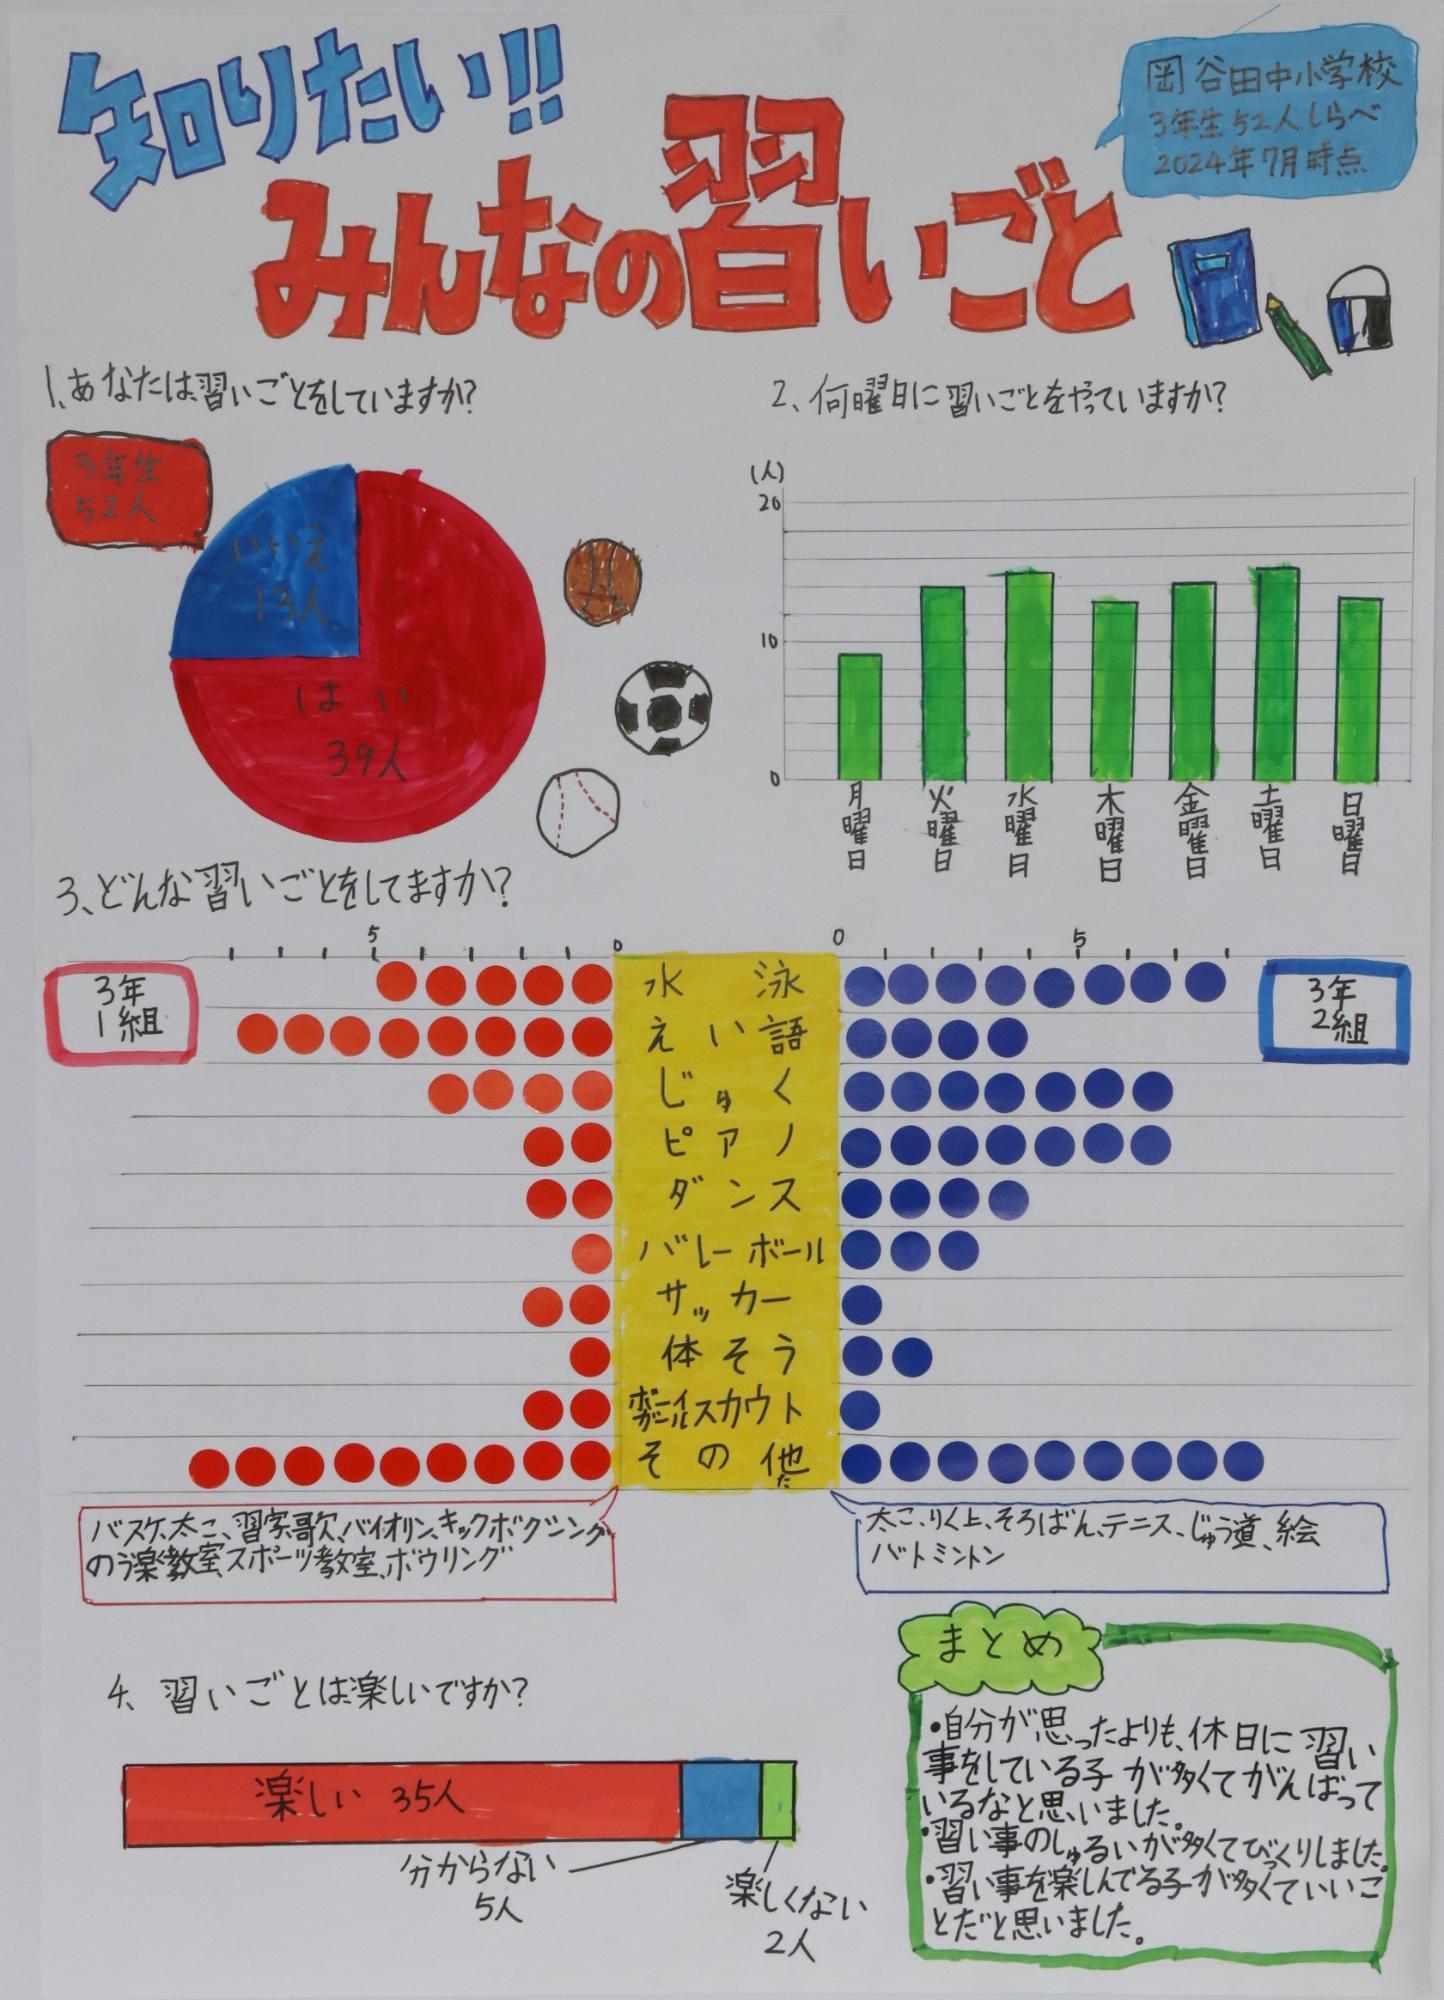 知りたい!!
みんなの習いごと
岡谷田中小学校
3年生52人しらべ
2024年7月時点
1、あなたは習いごとをしていますか?
3年生
52人
いいえ
13人
はい
39人
2、何曜日に習いごとをやっていますか?
(人)
20
10
0
月曜日
火曜日
水曜日
木曜日
金曜日
土曜日
日曜日
3、どんな習いごとをしてますか?
5
0
0
5
3年
1組
3年
2組
水泳
えい語
じゅく
ピアノ
ダンス
バレーボール
サッカー
体そう
ボーイ
ガールスカウト
その他
た
バスケ、太こ、習字、歌、バイオリン、キックボクシング
のう楽教室、スポーツ教室、ボウリング
太こ、りく上、そろばん、テニス、じゅう道、絵
バトミントン
4、習いごとは楽しいですか?
楽しい 35人
分からない
5人
楽しくない
2人
まとめ
・自分が思ったよりも、休日に習い
事をしている子が多くてがんばって
いるなと思いました。
・習い事のしゅるいが多くてびっくりしました。
・習い事を楽しんでる子が多くていいこ
とだと思いました。